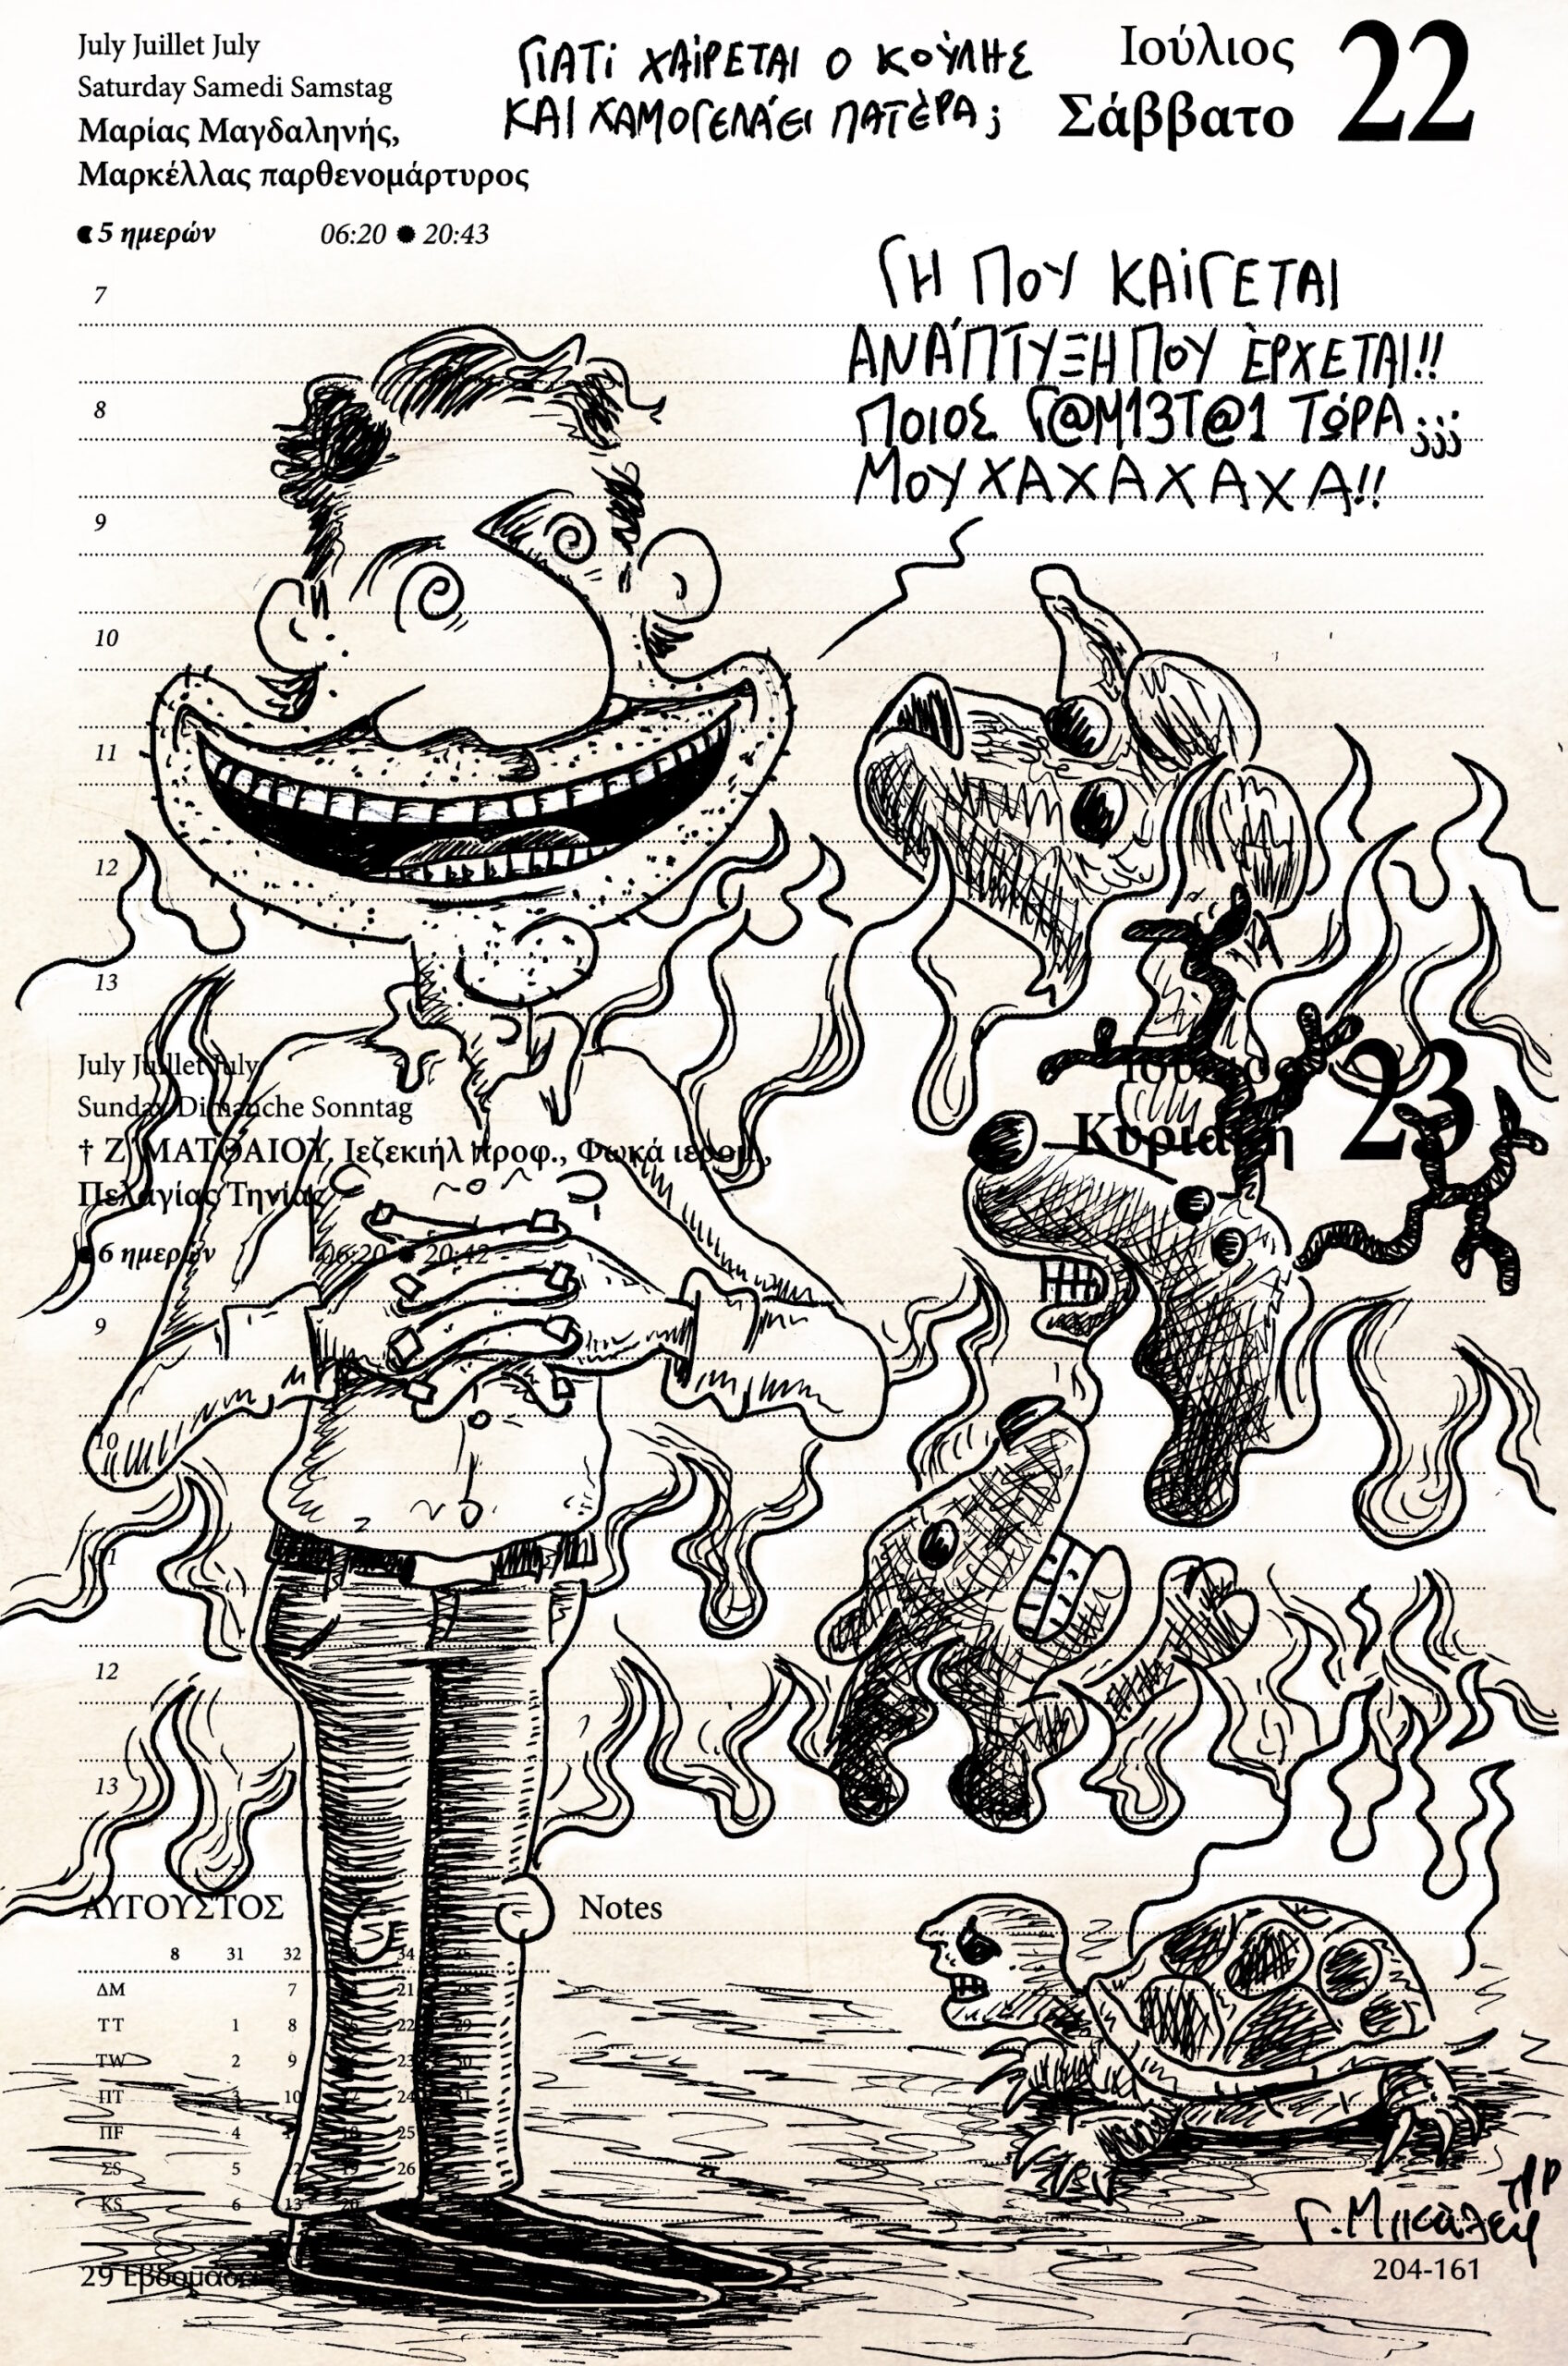 July Juillet July
Saturday Samedi Samstag
Μαρίας Μαγδαληνής,
Μαρκέλλας παρθενομάρτυρος
5 ημερών 06:20 20:43
ΓΙΑΤί ΧΑίΡΕΤΑΙ Ο ΚΟΎΛΗΣ
ΚΑΙ ΧΑΜΟΓΕΛΆΕΙ ΠΑΤΈΡΑ;
Ιούλιος
Σάββατο
22
ΓΗ ΠΟΥ ΚΑίΓΕΤΑΙ
ΑΝΆΠΤΥΞΗ ΠΟΥ ΈΡΧΕΤΑΙ!!
ΠΟΙΟΣ Γ@Μ13Τ@1 ΤΏΡΑ;;;
ΜΟΥΧΑΧΑΧΑΧΑ!!
7
8
9
10
11
12
13
July Juillet July
Sunday Dimanche Sonntag
† Ζ΄ ΜΑΤΘΑΙΟΥ, Ιεζεκιήλ προφ., Φωκά ιερομ.,
Πελαγίας Τηνίας
6 ημερών 06:20 20:42
Ιούλιος
Κυριακή
23
9
10
11
12
13
ΑΥΓΟΥΣΤΟΣ
8 31 32 34
ΔΜ 7 21 28
ΤΤ 1 8 22 29
ΤW 2 9 23 30
ΠΤ 3 10 17 24 31
ΠF 4 25
ΣS 5 12 19 26
KS 6 13 20
Notes
29 Εβδομάδα
204-161